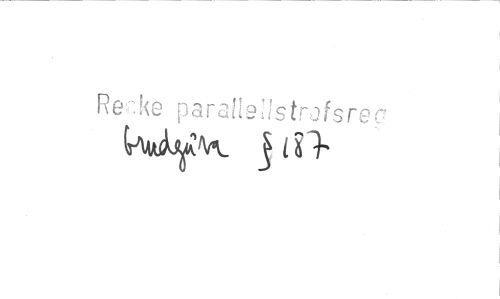 Recke parallellstrofsreg
brudgåva § 187